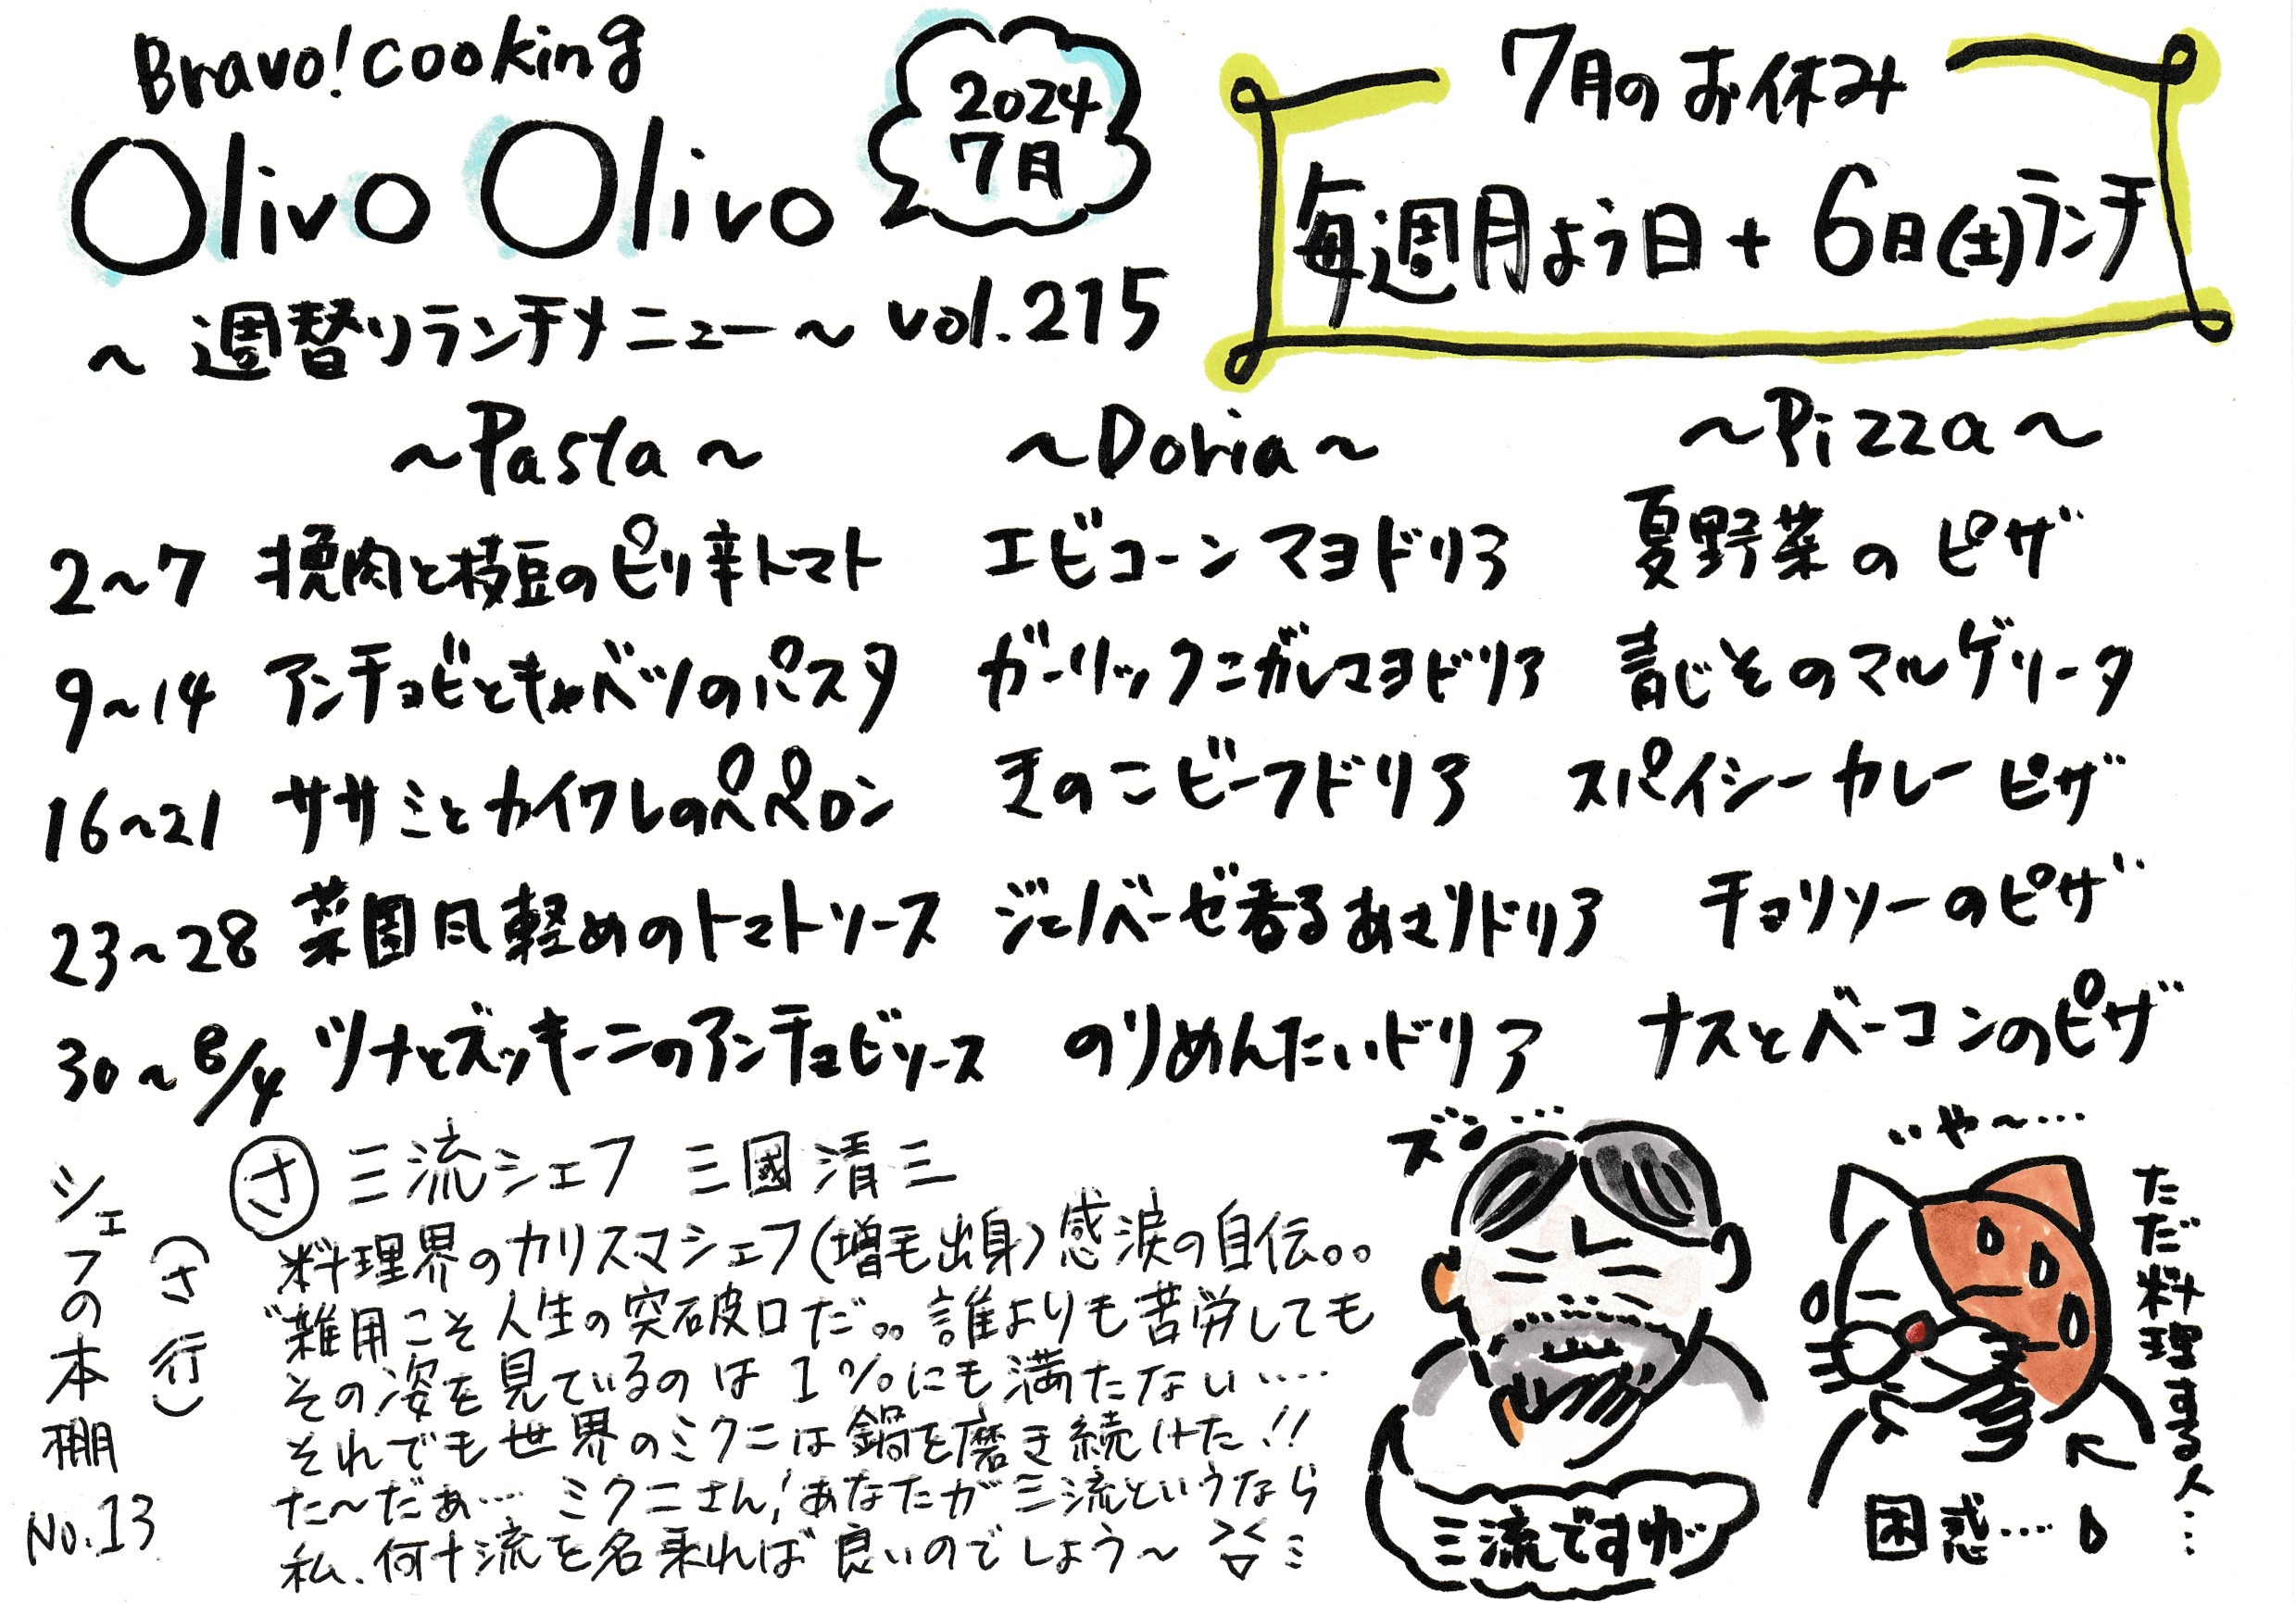 Bravo! cooking
Olivo Olivo
2024
7月
～週替りランチメニュー～ vol.215
7月のお休み
毎週月よう日 + 6日(土)ランチ
～Pasta～ ～Doria～ ～Pizza～
2～7 挽肉と枝豆のピリ辛トマト エビコーンマヨドリア 夏野菜のピザ
9～14 アンチョビとキャベツのパスタ ガーリックニガレマヨドリア 青じそのマルゲリータ
16～21 ササミとカイワレのペペロン きのこビーフドリア スパイシーカレーピザ
23～28 菜園風軽めのトマトソース ジェノベーゼ香るあさりドリア チョリソーのピザ
30～8/4 ツナとズッキーニのアンチョビソース のりめんたいドリア ナスとベーコンのピザ
シェフの本棚
(さ行)
No.13
さ 三流シェフ 三國清三
料理界のカリスマシェフ(増毛出身)感涙の自伝。。
"雑用こそ人生の突破口だ。。誰よりも苦労しても
その姿を見ているのは1%にも満たない…
それでも世界のミクニは鍋を磨き続けた!!
た～だぁ… ミクニさん!あなたが三流というなら
私、何十流を名乗れば良いのでしょう～
ズン…
三流ですがッ
いや～…
ただ料理する人…
困惑…